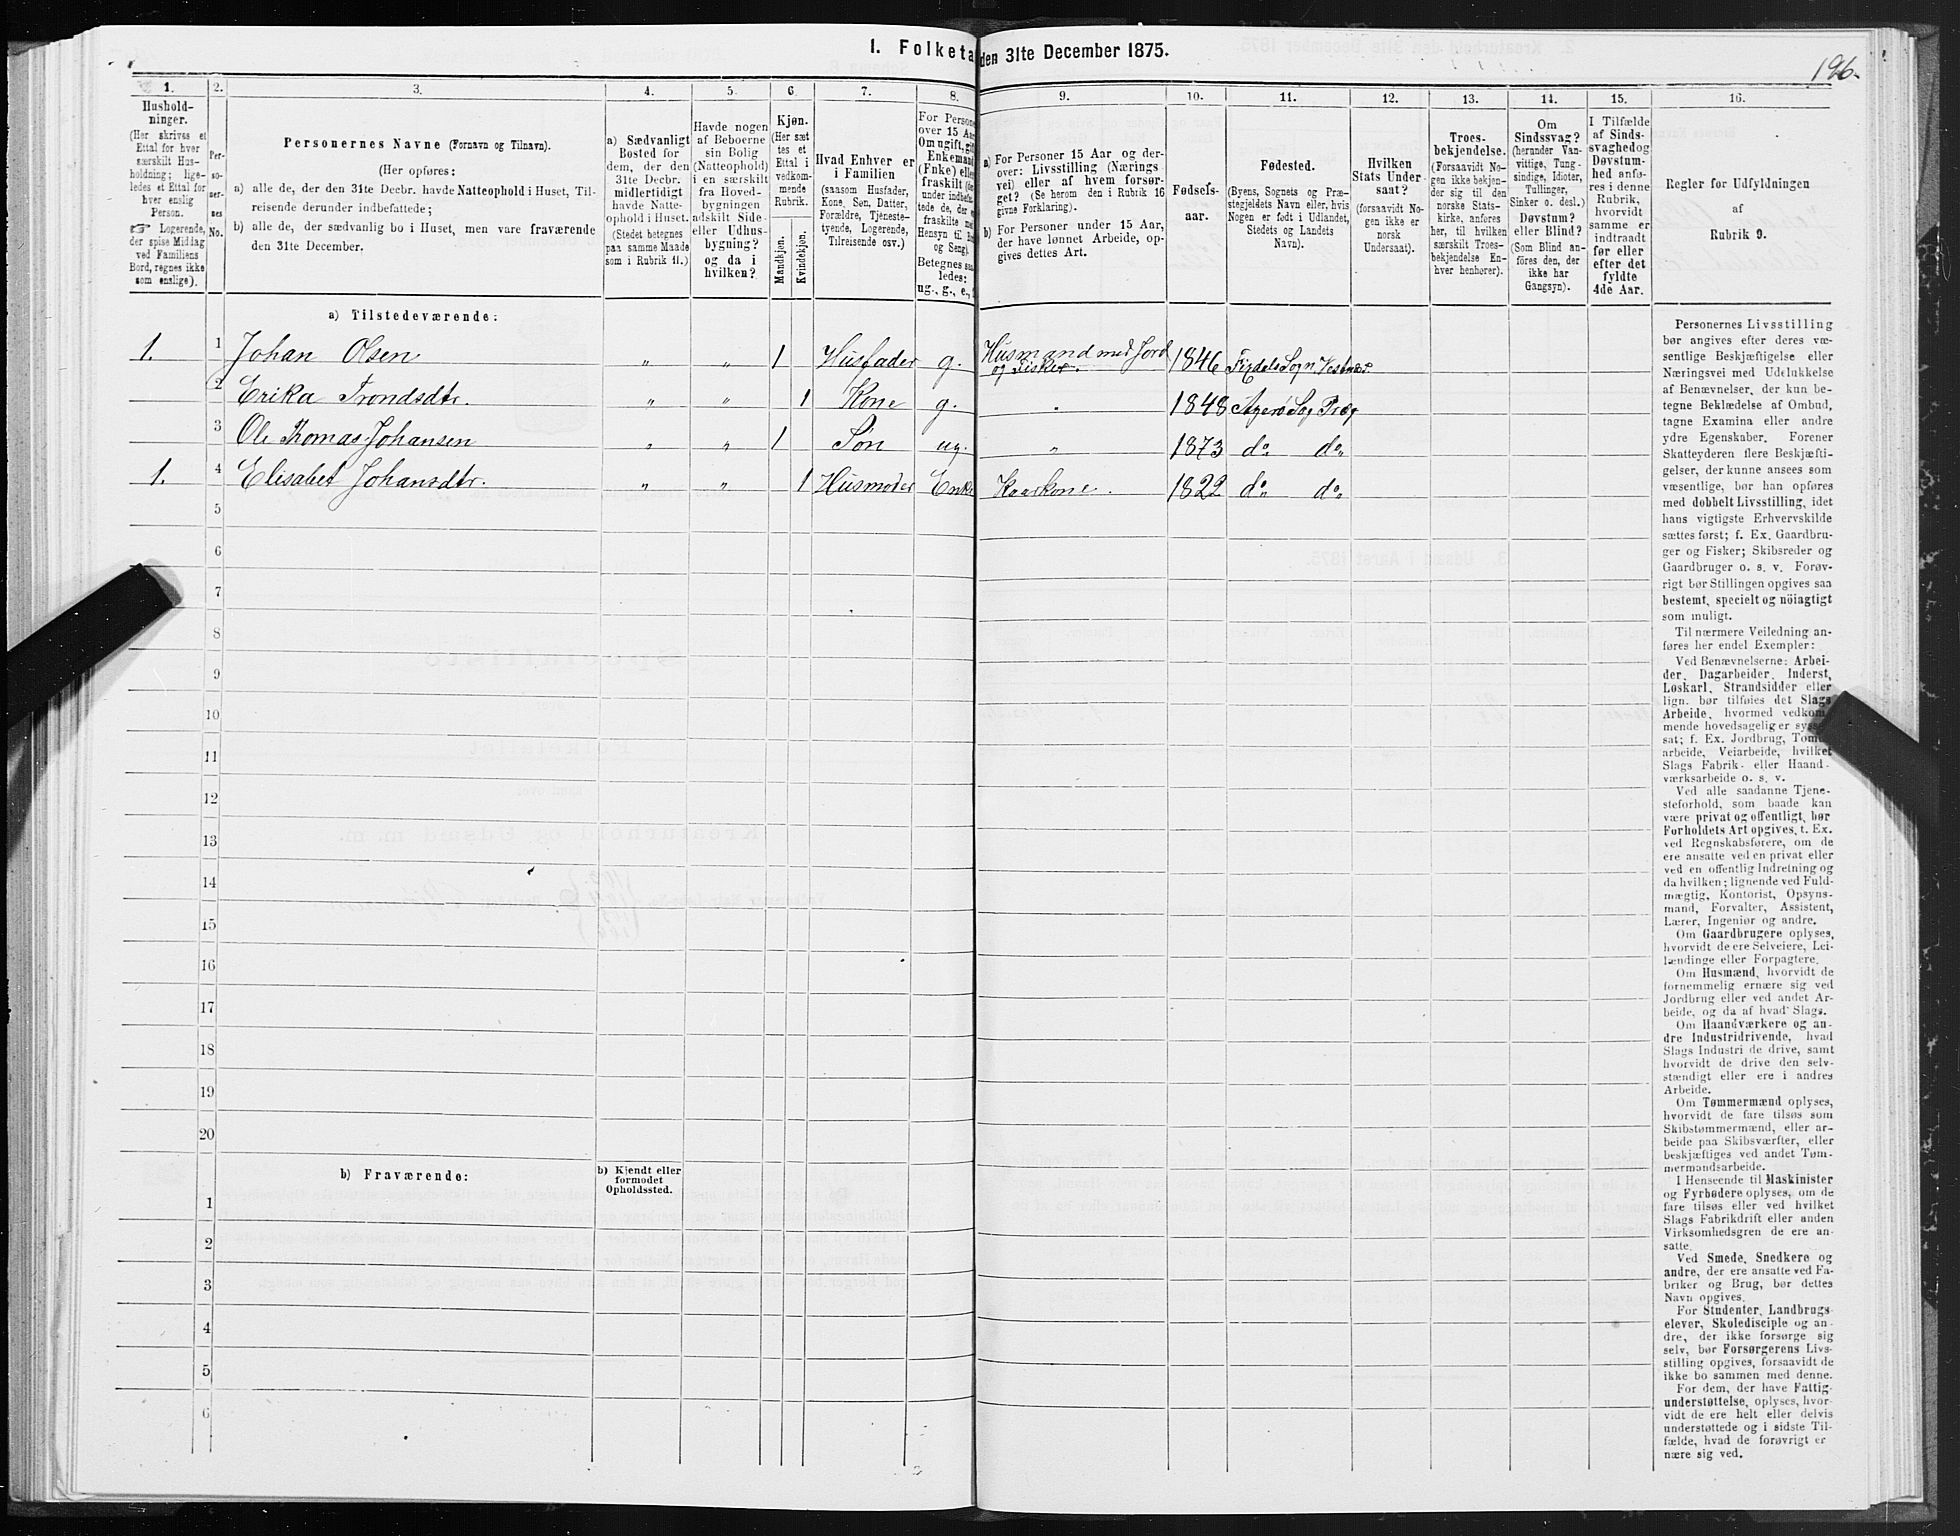 1. Folketa
den 31te December 1875.
196.
1. 2. 3. 4. 5. 6. 7. 8. 9. 10. 11. 12. 13. 14. 15. 16.
Hushold-
ninger.
(Her skrives et
Ettal for hver
særskilt Hus-
holdning; lige-
ledes et Ettal for
hver enslig
Person.
☞ Logerende,
der spise Middag
ved Familiens
Bord, regnes ikke
som enslige).
Per-
so-
ner-
nes
No.
Personernes Navne (Fornavn og Tilnavn).
(Her opføres:
a) alle de, der den 31te Decbr. havde Natteophold i Huset, Til-
reisende derunder indbefattede;
b) alle de, der sædvanlig bo i Huset, men vare fraværende
den 31te December.
a) Sædvanligt
Bosted for
dem, der den
31te Decbr.
midlertidigt
havde Natte-
ophold i Huset.
(Stedet betegnes
paa samme Maade
som i Rubrik 11.)
Havde nogen
af Beboerne
sin Bolig
(Natteophold)
i en særskilt
fra Hoved-
bygningen
adskilt Side-
eller Udhus-
bygning?
og da i
hvilken?
Kjøn.
(Her sæt
tes et
Ettal i
vedkom-
mende
Rubrik.
Mandkjøn.
Kvindekjøn.
Hvad Enhver er
i Familien
(saasom Husfader,
Kone, Søn, Datter,
Forældre, Tjeneste-
tyende, Logerende,
Tilreisende osv.)
For Persone
over 15 Aar
Om ugift, gift
Enkemand
(Enke) eller
fraskilt (de
under indbefat
tede de, der e
fraskilte med
Hensyn til Bo
og Seng).
Betegnes saa
ledes:
ug., g., e.,
a) For Personer 15 Aar og der-
over: Livsstilling (Nærings
vei) eller af hvem forsør-
get? (Se herom den i Rubrik 16
givne Forklaring).
b) For Personer under 15 Aar,
der have lønnet Arbeide, op-
gives dettes Art.
Fødsels-
aar.
Fødested.
(Byens, Sognets og Præ-
stegjeldets Navn eller, hvis
Nogen er født i Udlandet,
Stedets og Landets
Navn).
Hvilken
Stats Under
saat?
(forsaavidt No-
gen ikke er
norsk
Undersaat).
Troes-
bekjendelse.
(Forsaavidt No-
gen ikke bekjen-
der sig til den
norske Stats-
kirke, anføres
her, til hvilken
særskilt Troes-
bekjendelse En-
hver henhører).
Om
Sindssvag?
(herunder Van-
vittige, Tung-
sindige, Idioter,
Tullinger,
Sinker o. desl.)
Døvstum?
eller Blind?
(Som Blind an-
føres den, der
ikke har
Gangsyn).
I Tilfælde
af Sinds-
svaghed og
Døvstum-
hed anfø-
res i denne
Rubrik,
hvorvidt
samme er
indtraadt
før eller
efter det
fyldte
4de Aar.
Regler for Udfyldningen
af
Rubrik 9.
a) Tilstedeværende:
1. 1 Johan Olsen „ „ 1 Husfader g. Husmand med Jord
og Fisker. 1846 Sogn
2 Erika Trondsdtr. „ „ 1 Kone g. „ 1848 Agerø Sog Præg
3 Ole Thomas Johansen „ „ 1 Søn ug. „ 1873 do. do.
1. 4 Elisabet Johansdtr. „ „ 1 Husmoder Enke Kaarkone. 1822 do. do.
5
6
7
8
9
10
11
12
13
14
15
16
17
18
19
20
b) Fraværende:
b) Kjendt eller
formodet
Opholdssted.
1
2
3
4
5
6
Personernes Livsstilling
bør angives efter deres væ-
sentlige Beskjæftigelse eller
Næringsvei med Udelukkelse
af Benævnelser, der kun be-
tegne Beklædelse af Ombud,
tagne Examina eller andre
ydre Egenskaber. Forener
Skatteyderen flere Beskjæfti-
gelser, der kunne ansees som
væsentlige, bør han opføres
med dobbelt Livsstilling, idet
hans vigtigste Erhvervskilde
sættes først; f. Ex. Gaardbru-
ger og Fisker; Skibsreder og
Gaardbruger o. s. v. Forøv-
rigt bør Stillingen opgives saa
bestemt, specielt og nöiagtigt
som muligt.
Til nærmere Veiledning an-
føres her endel Exempler:
Ved Benævnelserne: Arbei-
der, Dagarbeider, Inderst,
Løskarl, Strandsidder eller
lign. bør tilføies det Slags
Arbeide, hvormed vedkom-
mende hovedsagelig er syssel
sat; f. Ex. Jordbrug, Tømer
arbeide, Veiarbeide, hvilket
Slags Fabrik- eller Haand-
værksarbeide o. s. v.
Ved alle saadanne Tjene-
steforhold, som baade kan
være privat og offentligt, bør
Forholdets Art opgives, t. Ex.
ved Regnskabsførere, om de
ere ansatte ved en privat eller
ved en offentlig Indretning og
da hvilken; lignende ved Fuld-
mægtig, Kontorist, Opsyns-
mand, Forvalter, Assistent,
Lærer, Ingeniør og andre.
Om Gaardbrugere oplyses,
hvorvidt de ere Selveiere, Lei-
lændinge eller Forpagtere.
Om Husmænd, hvorvidt de
fornemmelig ernære sig ved
Jordbrug eller ved andet Ar-
beide, og da af hvad Slags.
Om Haandværkere og an-
dre Industridrivende, hvad
Slags Industri de drive, samt
hvorvidt de drive den selv-
stændigt eller ere i andres
Arbeide.
Om Tømmermænd oplyses,
hvorvidt de fare tilsøs som
Skibstømmermænd, eller ar-
beide paa Skibsværfter, eller
beskjæftiges ved andet Tøm-
mermandsarbeide.
I Henseende til Maskinister
og Fyrbødere oplyses, om de
fare tilsøs eller ved hvilket
Slags Fabrikdrift eller anden
Virksomhedsgren de ere an-
satte.
Ved Smede, Snedkere og
andre, der ere ansatte ved Fa-
briker og Brug, bør dettes
Navn opgives.
For Studenter, Landbrugs-
elever, Skoledisciple og an-
dre, der ikke forsørge sig
selv, bør Forsørgerens Livs-
stilling opgives, forsaavidt de
ikke bo sammen med denne.
For dem, der have Fattig-
understøttelse, oplyses, hvor-
vidt de ere helt eller delvis
understøttede og i sidste Til-
fælde, hvad de forøvrigt er
nære sig ved.